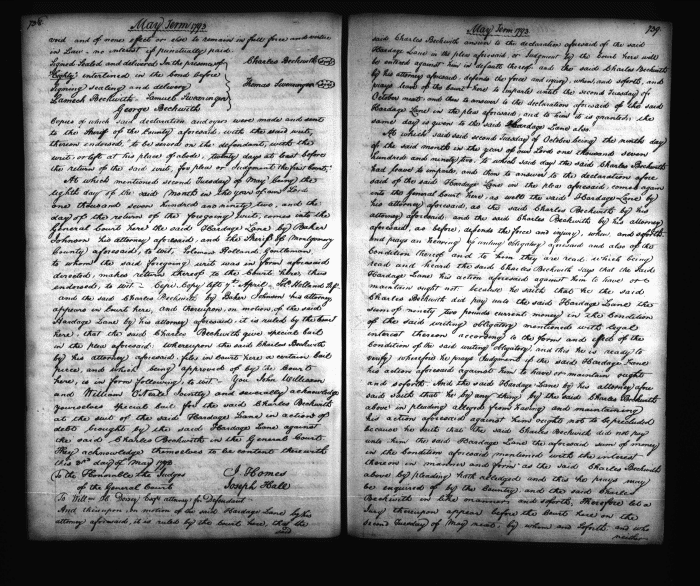 738
May Term 1793
void and of none effect or else to remain in full force and virtue
in Law. no interest if punctually paid.
Signed Sealed and delivered In the presence of
Charles Beckwith (seal)
Eighty interlined in the bond before
signing sealing and delivery
Thomas Swearingen (seal)
Lamech Beckwith Samuel Swearingen
George Beckwith
Copies of which said declaration and oyer were made and sent
to the Sheriff of the County aforesaid, with the said writ,
thereon endorsed, to be served on the defendant, with the
writ, or left at his place of abode, twenty days at least before
the return of the said writ, for plea or Judgment the first Court,
At which mentioned second Tuesday of May being the
eighth day of the said Month in the year of our Lord
one thousand seven hundred and ninety two, and the
day of the return of the foregoing writ, comes into the
General Court here the said Hardage Lane by Baker
Johnson his attorney aforesaid, and the Sheriff of Montgomery
County aforesaid, to wit, Solomon Holland, Gentleman,
to whom the said foregoing writ was in form aforesaid
directed, makes return thereof to the Court here, thus
endorsed, to wit - Cepi. Copy left 7th April. Sol. Holland Shff.
and the said Charles Beckwith by Baker Johnson his attorney
appears in Court here, and thereupon, on motion of the said
Hardage Lane by his attorney aforesaid, it is ruled by the Court
here, that the said Charles Beckwith give special bail
in the plea aforesaid. Whereupon the said Charles Beckwith
by his attorney aforesaid, files in Court here a certain bail
piece, and which being approved of by the Court
here, is in form following, to wit - You John Wilcoxon
and William O'Neale Jointly and severally acknowledge
yourselves special bail for the said Charles Beckwith
at the suit of the said Hardage Lane in action of
debt brought by the said Hardage Lane against
the said Charles Beckwith in the General Court.
They acknowledge themselves to be content therewith
this 30th day of May 1792
To the Honorable the Judges
J. Homes
of the General Court
Joseph Hall
To Will. H. Dorsey Esqr. attorney for Defendant
And thereupon, on motion of the said Hardage Lane by his
attorney aforesaid, it is ruled by the Court here, that the
said
May Term 1793
739
said Charles Beckwith answer to the declaration aforesaid of the said
Hardage Lane in the plea aforesaid, or Judgment by the Court here will
be entered against him in default thereof, and the said Charles Beckwith
by his attorney aforesaid, defends the force and injury, when and soforth, and
prays leave of the Court here to Imparle until the second Tuesday of
October next and then to answer to the declaration aforesaid of the said
Hardage Lane in the plea aforesaid, and to him it is granted; the
same day is given to the said Hardage Lane also.
At which said second Tuesday of October being the ninth day
of the said month in the year of our Lord one thousand seven
hundred and ninety two, to which said day the said Charles Beckwith
had leave to imparle, and then to answer to the declaration afore
said of the said Hardage Lane in the plea aforesaid, comes again
into the General Court here, as well the said Hardage Lane by
his attorney aforesaid, as the said Charles Beckwith by his
attorney aforesaid and the said Charles Beckwith by his attorney
aforesaid, as before, defends the force and injury, when and soforth
and prays an hearing of writing obligatory aforesaid and also of the
Condition thereof and to him they are read which being
read and heard the said Charles Beckwith says that the said
Hardage Lane his action aforesaid against him to have or
maintain ought not because he saith that he the said
Charles Beckwith did pay unto the said Hardage Lane the
sum of ninety two pounds current money in the Condition
of the said writing obligatory mentioned with legal
interest thereon according to the form and effect of the
Condition of the said writing obligatory and this he is ready to
verify wherefore he prays Judgment if the said Hardage Lane
his action aforesaid against him to have or maintain ought
and soforth. And the said Hardage Lane by his attorney afore
said saith that he by any thing by the said Charles Beckwith
above in pleading alleged from having and maintaining
his action aforesaid against him ought not to be precluded
because he saith that the said Charles Beckwith did not pay
unto him the said Hardage Lane the aforesaid sum of money
in the Condition aforesaid mentioned with the interest
thereon in manner and form as the said Charles Beckwith
above by pleading hath alledged and this he prays may
be inquired of by the County, and the said Charles
Beckwith in like manner and soforth, Therefore let a
Jury thereupon appear before the Court here on the
second Tuesday of May next, by whom and soforth and who
neither